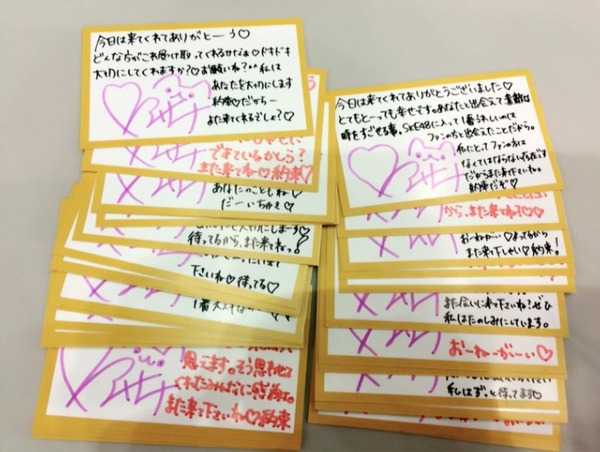 今日は来てくれてありがとーう♡
どんな方がこれ受け取ってくれるせなぁ♡ドキドキ
大切にしてくれますか?♡お願いね?^^私は
あなたを大切にします
約束♡だから
また来てくれるでしょ?♡
できているかしら?
また来てね♡約束♡
あなたのこともね
だーいちゅき♡
待ってるから、また来てねっ!
下さいね♡待ってる♡
思えます。そう思わせて
くれたみんなに感謝。
また来て下さいね♡約束
今日は来てくれてありがとうございました♡
とてもとっても幸せです。あなたと出会えて素敵な
時をすごせる事。SKE48に入って1番うれしいのは
ファンの方と出会えたことだから。
私にとってファンの方は
なくてはならない存在です
だからまた来て下さいね
約束だぞ♡
から、また来てね?♡
おーねがい♡まってるから
また来て下しゃい♡約束!
また会いに来て下さいね?ぜひ
私はたのしみにしています。
おーねーがーい♡
私はず。と待ってます♡